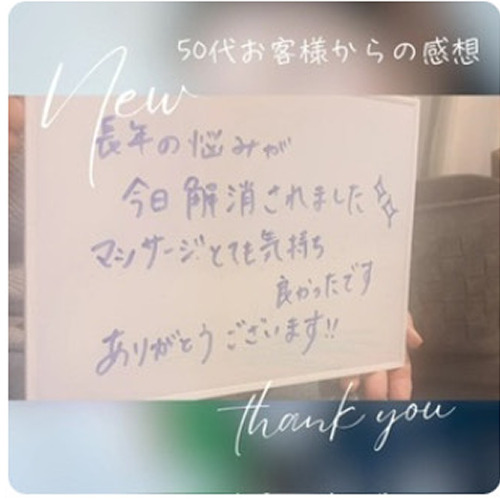 50代お客様からの感想
New
長年の悩みが
今日解消されました✨
マッサージとても気持ち
良かったです
ありがとうございます!!
thank you